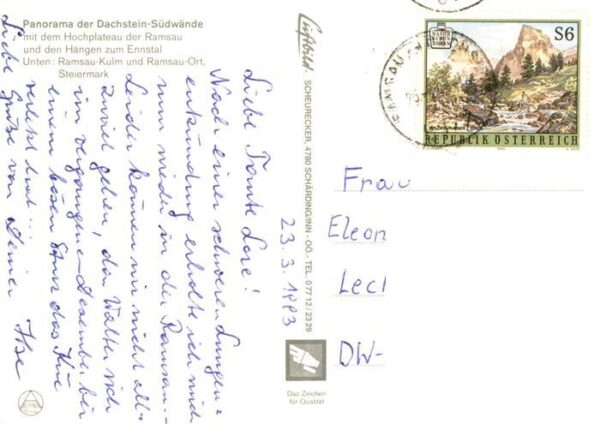 Panorama der Dachstein-Südwände
mit dem Hochplateau der Ramsau
und den Hängen zum Ennstal
Unten: Ramsau-Kulm und Ramsau-Ort,
Steiermark
Liebe Tante Lore!
Nach einer schweren Lungen=
erkrankung erholte ich mich
nun wieder in der Ramsau.-
Leider können wir nicht all=
zuviel gehen, da Walter sich
im vergangenen Dezember bei
einem bösen Sturz das Knie
verletzt hat...
Liebe Grüße von Deiner Ilse
23. 3. 1993
Luftbild - SCHEURECKER, 4780 SCHÄRDING/INN - OÖ. - TEL. 0 77 12 / 23 29
Das Zeichen
für Qualität
RAMSAU
NATUR
S6
REPUBLIK ÖSTERREICH
Frau
Eleon
Lecl
DW-